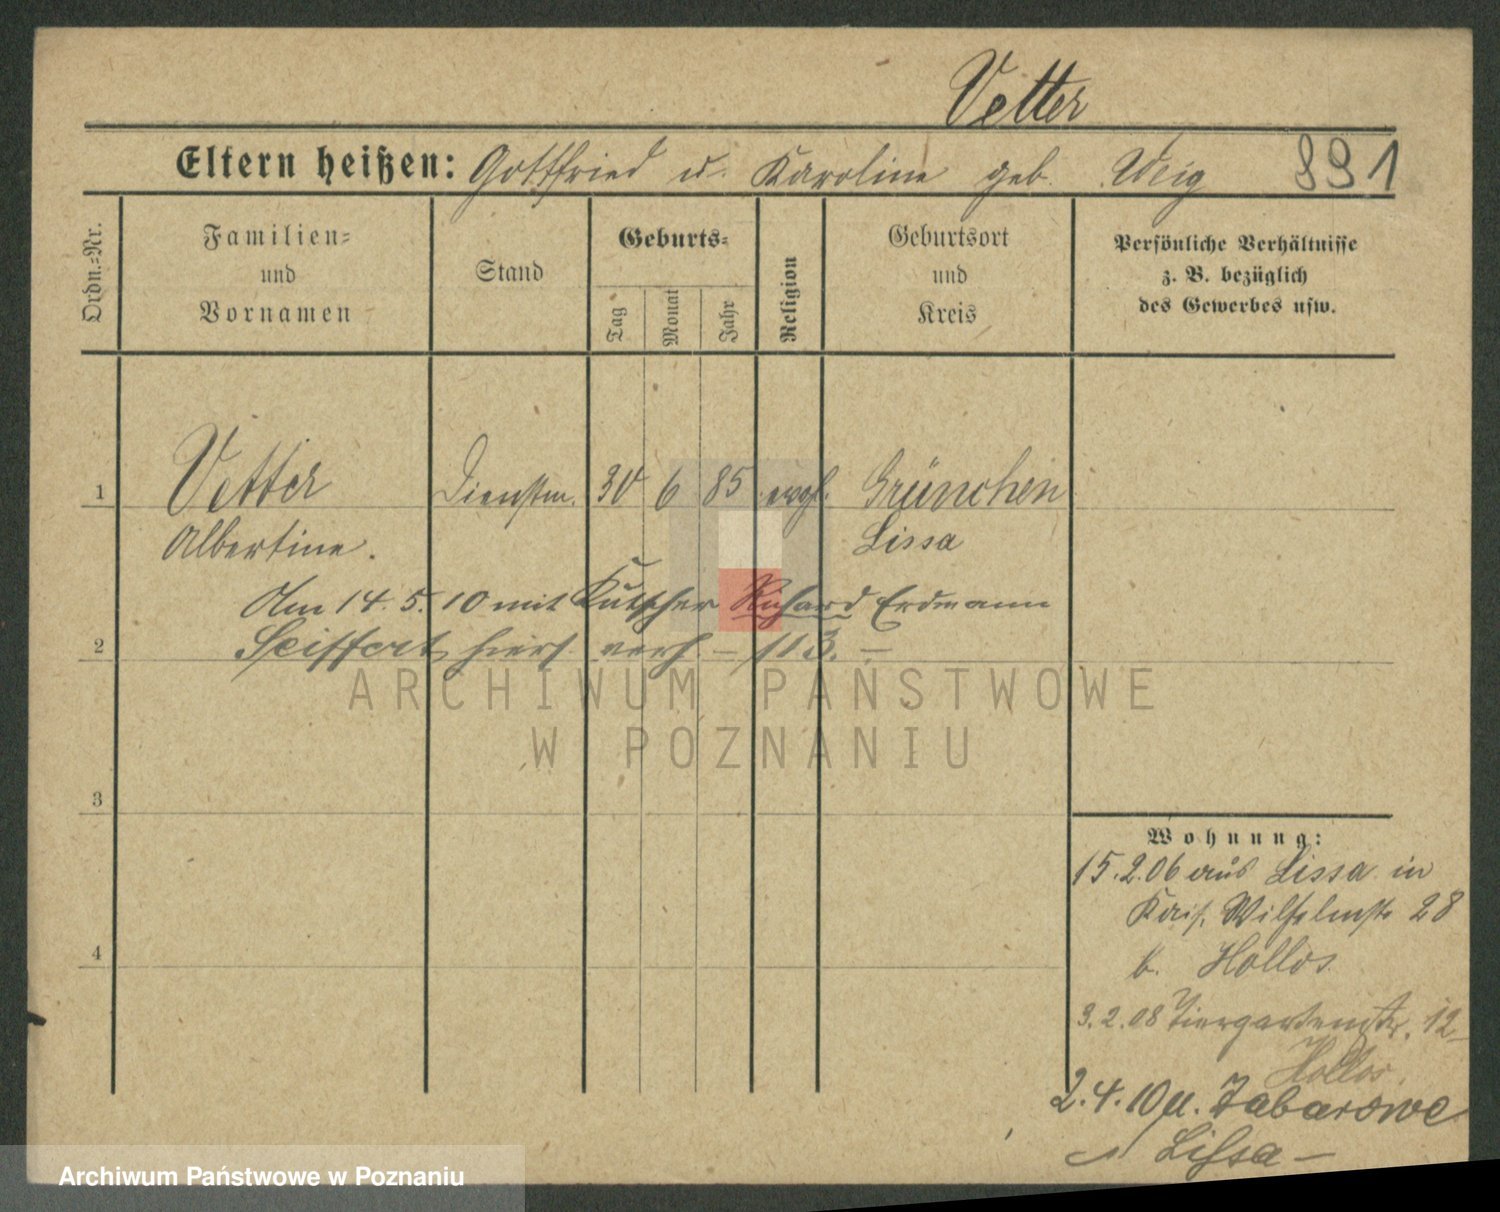 Vetter
Eltern heißen: Gottfried u. Karoline geb. Weig 891
Ordn.-Nr.
Familien-
und
Vornamen
Stand
Geburts-
Tag
Monat
Jahr
Religion
Geburtsort
und
Kreis
Persönliche Verhältnisse
z. B. bezüglich
des Gewerbes usw.
1 Vetter Dienstm. 30 6 85 evgl. Grünchen
Albertine. Lissa
Am 14.5.10 mit Kutscher Richard Erdmann
2 Seiffert hiers. verh – 113. –
ARCHIWUM PAŃSTWOWE
W POZNANIU
3
Wohnung:
15.2.06 aus Lissa in
Kais. Wilhelmstr 28
b. Hollos
4
3.2.08 Tiergartenstr. 12
Hollos.
2.4.10 n. Zaborowo
Lissa –
Archiwum Państwowe w Poznaniu